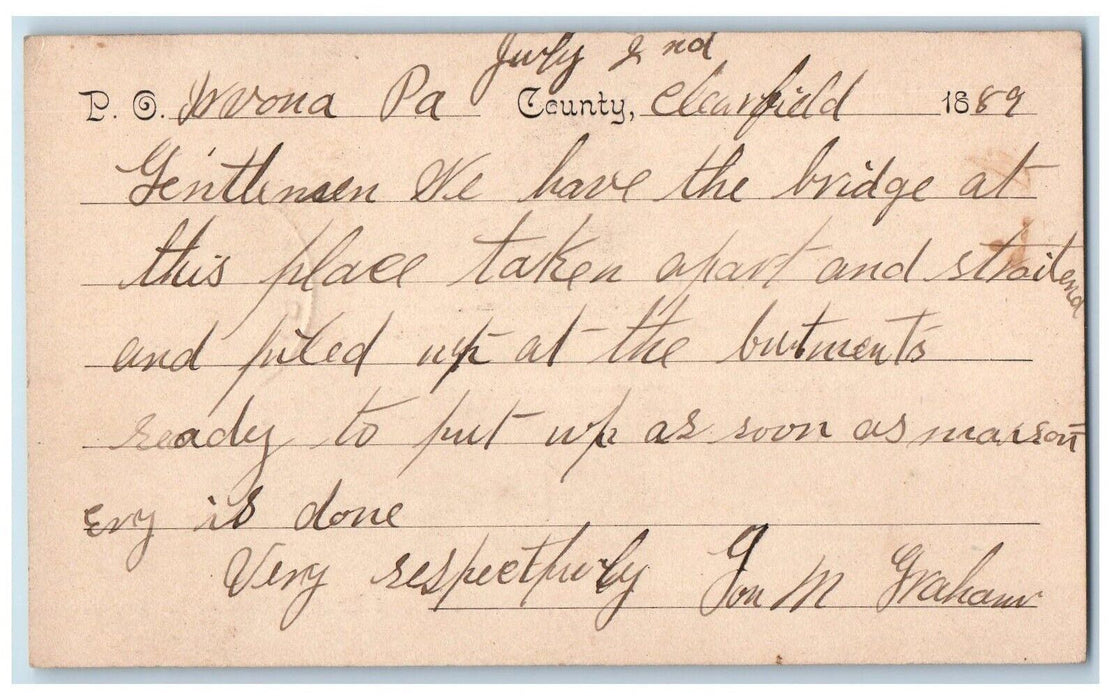 July 2nd
P. O. Irvona Pa County, Clearfield 1889
Gentlemen We have the bridge at
this place taken apart and straitend
and piled up at the butments
ready to put up as soon as masson
ery is done
Very respectfuly Jon M Graham